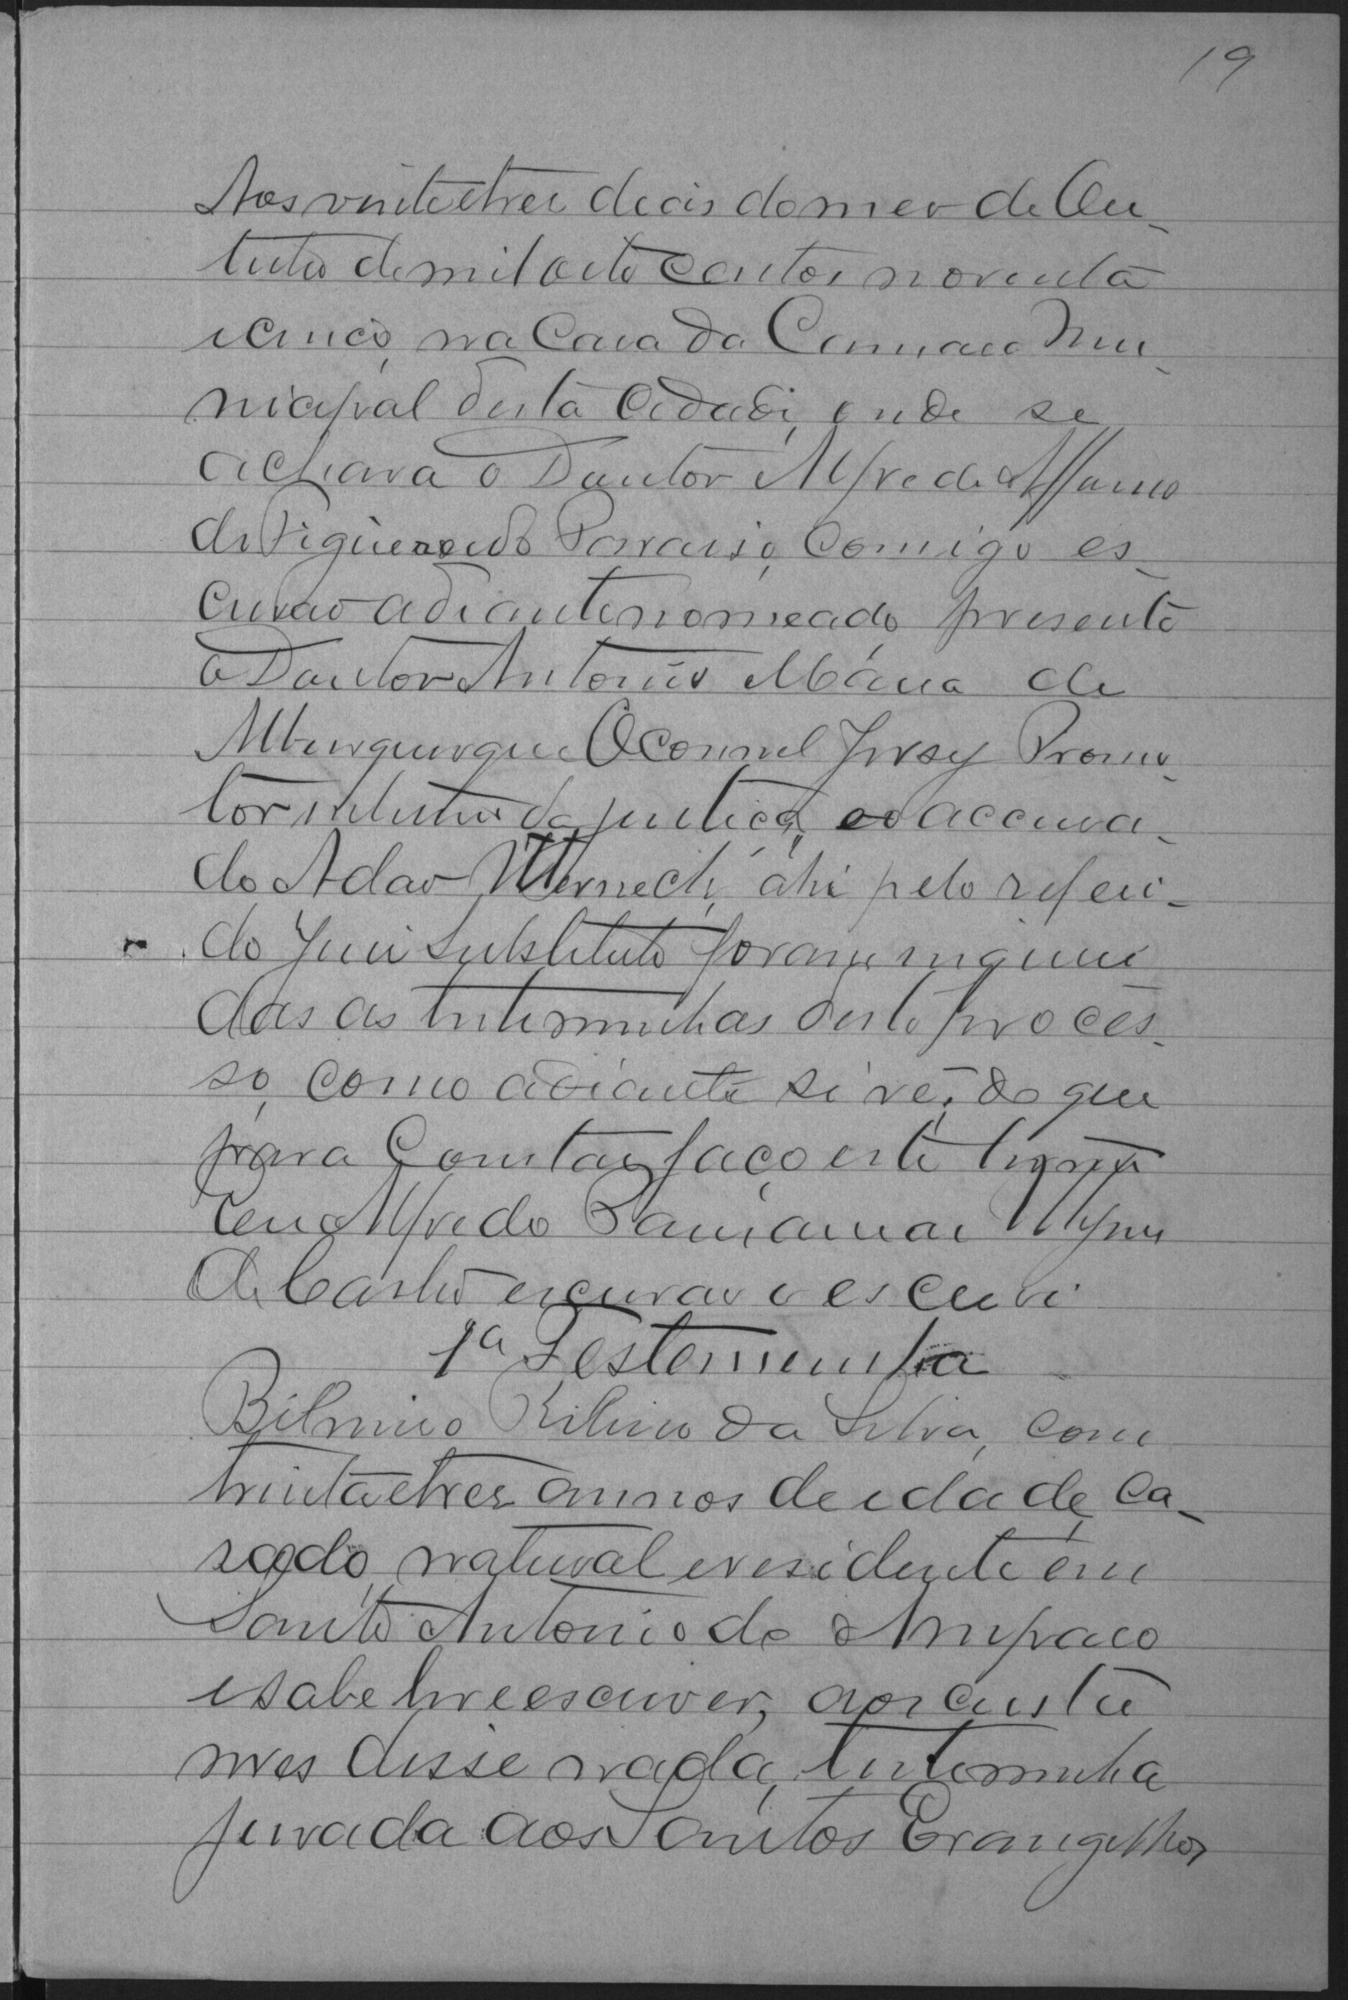 19
Aos vinte e tres dias do mez de Ou-
tubro de mil oito centos noventa
e cinco, na Casa da Camara Mu-
nicipal desta Cidade, onde se
achava o Doutor Alfredo Affonso
de Figueredo Paraiso, comigo es-
crivão adiante nomeado, presente
o Doutor Antonio Maria de
Alburquerque Oconnel Jersey Promo-
tor interino da justiça, e o accusa-
do Adão Werneck, ahi pelo referi-
do Juiz Substituto foram inquiri
das as testemunhas deste proces-
so, como adiante se vê, do que
para constar, faço este termo
Eu Alfredo
de Castro escrivão o escrevi
1ª Testemunha
da Silva, com
trinta e tres annos de idade, ca-
sado, natural e residente em
Santo Antonio do Amparo
e sabe ler e escrever, aos custu
mes disse nada, testemunha
jurada aos Santos Evangelhos